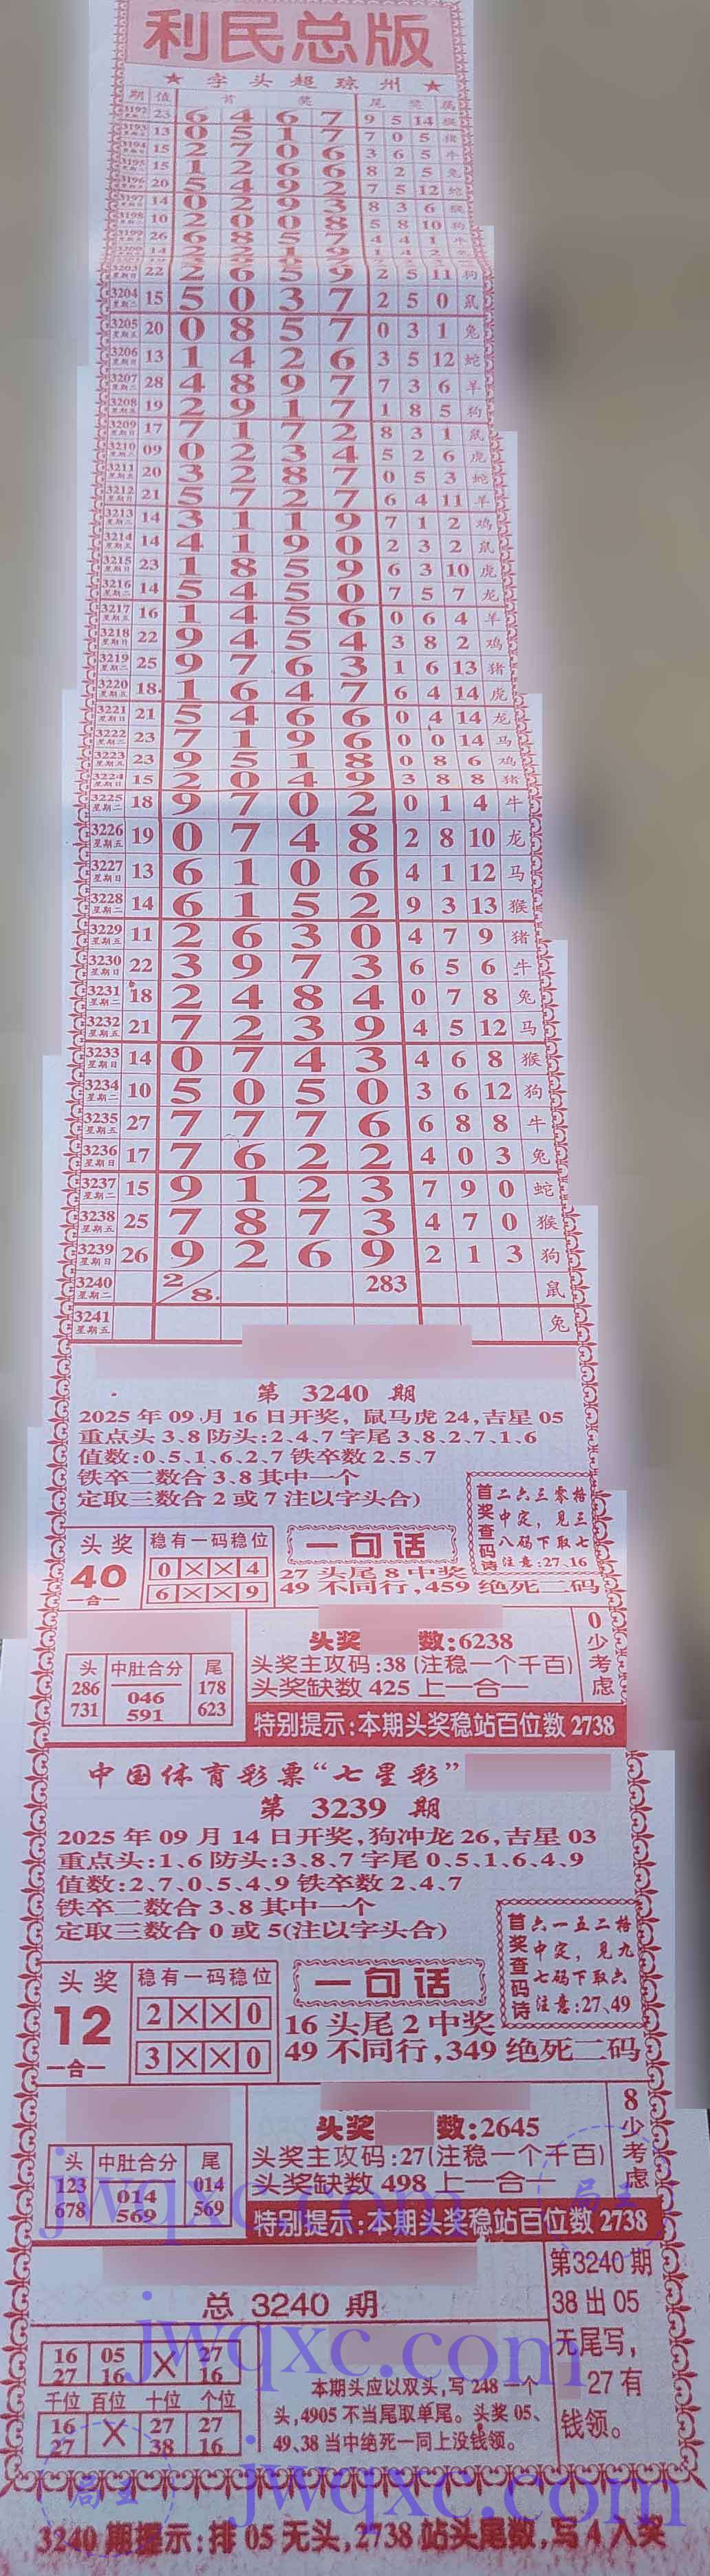 利民总版
★ 字头超琼州 ★
期 值 首 奖 尾 奖 属
3192 23 6 4 6 7 9 5 14 猴
3193 13 0 5 1 7 7 0 5 猪
3194 15 2 7 0 6 3 6 5 牛
3195 15 1 2 6 6 8 2 5 兔
3196 20 5 4 9 2 7 5 12 蛇
3197 14 0 2 9 3 8 3 6 猴
3198 10 2 0 0 8 5 8 10 狗
3199 26 6 8 5 7 4 4 1 牛
3203 星期日 22 2 6 5 9 2 5 11 狗
3204 星期二 15 5 0 3 7 2 5 0 鼠
3205 星期五 20 0 8 5 7 0 3 1 兔
3206 星期日 13 1 4 2 6 3 5 12 蛇
3207 星期二 28 4 8 9 7 7 3 6 羊
3208 星期五 19 2 9 1 7 1 8 5 狗
3209 星期日 17 7 1 7 2 8 3 1 鼠
3210 星期二 09 0 2 3 4 5 2 6 虎
3211 星期五 20 3 2 8 7 0 5 3 蛇
3212 星期日 21 5 7 2 7 6 4 11 羊
3213 星期二 14 3 1 1 9 7 1 2 鸡
3214 星期五 14 4 1 9 0 2 3 2 鼠
3215 星期日 23 1 8 5 9 6 3 10 虎
3216 星期二 14 5 4 5 0 7 5 7 龙
3217 星期五 16 1 4 5 6 0 6 4 羊
3218 星期日 22 9 4 5 4 3 8 2 鸡
3219 星期二 25 9 7 6 3 1 6 13 猪
3220 星期五 18 1 6 4 7 6 4 14 虎
3221 星期日 21 5 4 6 6 0 4 14 龙
3222 星期二 23 7 1 9 6 0 0 14 马
3223 星期五 23 9 5 1 8 0 8 6 鸡
3224 星期日 15 2 0 4 9 3 8 8 猪
3225 星期二 18 9 7 0 2 0 1 4 牛
3226 星期五 19 0 7 4 8 2 8 10 龙
3227 星期日 13 6 1 0 6 4 1 12 马
3228 星期二 14 6 1 5 2 9 3 13 猴
3229 星期五 11 2 6 3 0 4 7 9 猪
3230 星期日 22 3 9 7 3 6 5 6 牛
3231 星期二 18 2 4 8 4 0 7 8 兔
3232 星期五 21 7 2 3 9 4 5 12 马
3233 星期日 14 0 7 4 3 4 6 8 猴
3234 星期二 10 5 0 5 0 3 6 12 狗
3235 星期五 27 7 7 7 6 6 8 8 牛
3236 星期日 17 7 6 2 2 4 0 3 兔
3237 星期二 15 9 1 2 3 7 9 0 蛇
3238 星期五 25 7 8 7 3 4 7 0 猴
3239 星期日 26 9 2 6 9 2 1 3 狗
3240 星期二 2/8. 283 鼠
3241 星期五 兔
第 3240 期
2025年09月16日开奖, 鼠马虎24,吉星05
重点头3、8防头:2、4、7字尾3、8、2、7、1、6
值数:0、5、1、6、2、7铁卒数2、5、7
铁卒二数合3、8其中一个
定取三数合2或7注以字头合)
首奖查码诗
二六三零格
中定, 见三
八码下取七
注意:27、16
头奖
40
一合一
稳有一码稳位
0 × × 4
6 × × 9
一句话
27 头尾 8 中奖
49 不同行,459 绝死二码
头 中肚合分 尾
286 046 178
731 591 623
头奖 数:6238
头奖主攻码:38(注稳一个千百)
头奖缺数425上一合一
0少考虑
特别提示:本期头奖稳站百位数2738
中国体育彩票“七星彩”
第 3239 期
2025年09月14日开奖,狗冲龙26,吉星03
重点头:1、6防头:3、8、7字尾0、5、1、6、4、9
值数:2、7、0、5、4、9铁卒数2、4、7
铁卒二数合3、8其中一个
定取三数合0或5(注以字头合)
首奖查码诗
六一五二格
中定, 见九
七码下取六
注意:27、49
头奖
12
一合一
稳有一码稳位
2 × × 0
3 × × 0
一句话
16 头尾 2 中奖
49 不同行,349 绝死二码
头 中肚合分 尾
123 014 014
678 569 569
头奖 数:2645
头奖主攻码:27(注稳一个千百)
头奖缺数498上一合一
8少考虑
特别提示:本期头奖稳站百位数2738
jwqxc.com
局王
总 3240 期
16 05 × 27
27 16 16
千位 百位 十位 个位
16 × 27 27
27 38 16
本期头应以双头,写248一个
头,4905不当尾取单尾。头奖05、
49、38当中绝死一同上没钱领。
第3240期
38出05
无尾写,
27有
钱领。
jwqxc.com
局王
jwqxc.com
3240期提示:排05无头,2738站头尾数,写4入奖